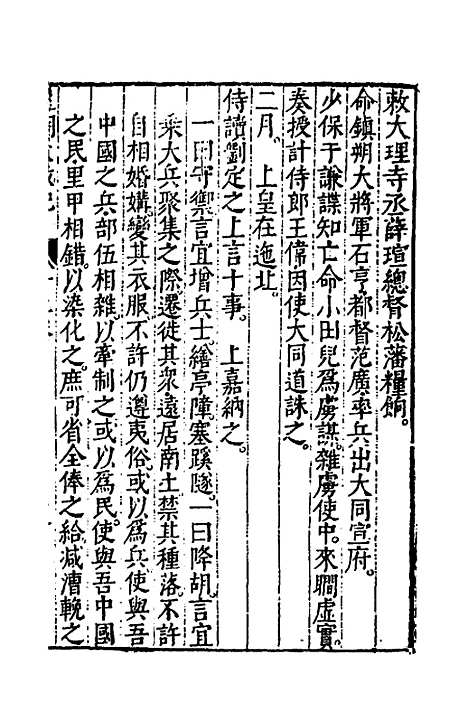 敕大理寺丞薛瑄總督松藩糧餉。
命鎮朔大將軍石亨都督范廣率兵出大同宣府。
少保于謙諜知亡命小田兒爲虜謀。雜虜使中。來瞷虛實。
奏授計侍郎王偉因使大同道誅之。
二月。上皇在迤北。
侍讀劉定之上言十事。上嘉納之。
一曰守禦言宜增兵士。繕亭障。塞蹊隧。一曰降胡。言宜
乘大兵聚集之際遷徙其衆遠居南土禁其種落。不許
自相婚媾。變其衣服不許仍遵夷俗。或以爲兵使與吾
中國之兵部伍相雜。以牽制之或以爲民。使與吾中國
之民里甲相錯。以染化之。庶可省全俸之給。減漕輓之